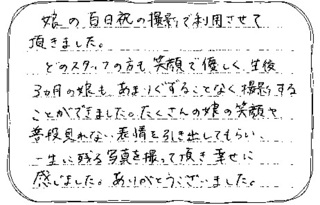 娘の百日祝の撮影で利用させて
頂きました。
どのスタッフの方も笑顔で優しく、生後
3ヵ月の娘も、あまりぐずることなく撮影する
ことができました。たくさんの娘の笑顔や
普段見れない表情を引き出してもらい、
一生に残る写真を撮って頂き幸せに
感じました。ありがとうございました。